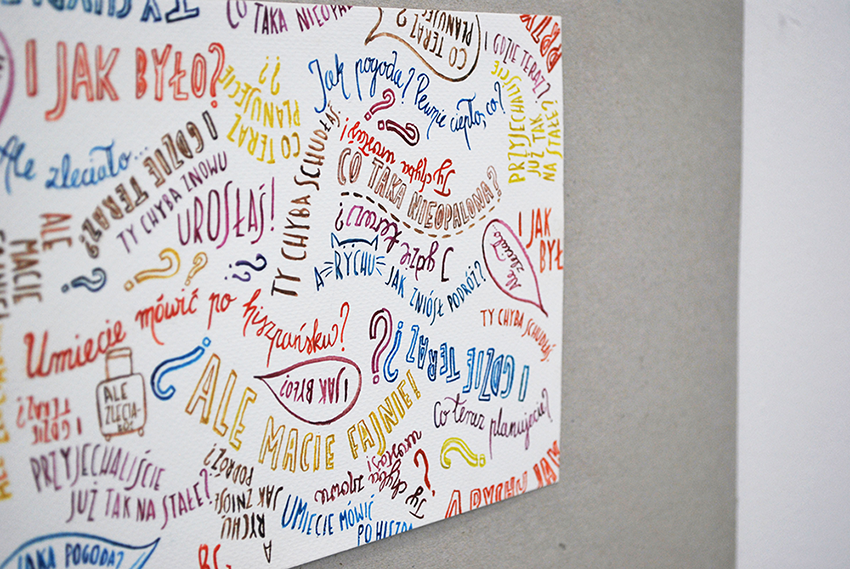 CO TAKA NIEOPALO
CO TERAZ?
PLANUJEC
I GDZIE TERAZ?
PRZY
I JAK BYŁO?
CO TERAZ
PLANUJECIE
??
Jak pogoda? Pewnie ciepło, co?
PRZYJECHALIŚCIE
JUŻ TAK
NA STAŁE?
Ale zleciało...
I GDZIE TERAZ?
TY CHYBA ZNOWU
UROSŁAŚ!
TY CHYBA SCHUDŁAŚ
? ?
Ty chyba urosłaś!
CO TAKA NIEOPALONA?
I gdzie teraz?
I JAK
BYŁ
Ale zleciało...
ALE
MACIE
? ? ? ?
A RYCHU JAK ZNIÓSŁ PODRÓŻ?
TY CHYBA SCHUDŁAŚ
Umiecie mówić po hiszpańsku?
ALE
ZLECIA-
ŁO!
?
I JAK BYŁO?
? ?
I GDZIE TERAZ?
I GDZIE
TERAZ?
ALE MACIE FAJNIE!
Co teraz planujecie?
?
PRZYJECHALIŚCIE
JUŻ TAK NA STAŁE?
A RYCHU
JAK ZNIÓSŁ
PODRÓŻ?
Ty chyba znowu
urosłaś!
?
UMIECIE MÓWIĆ
PO HISZPA
A RYCHU JAK
JAKA POGODA?